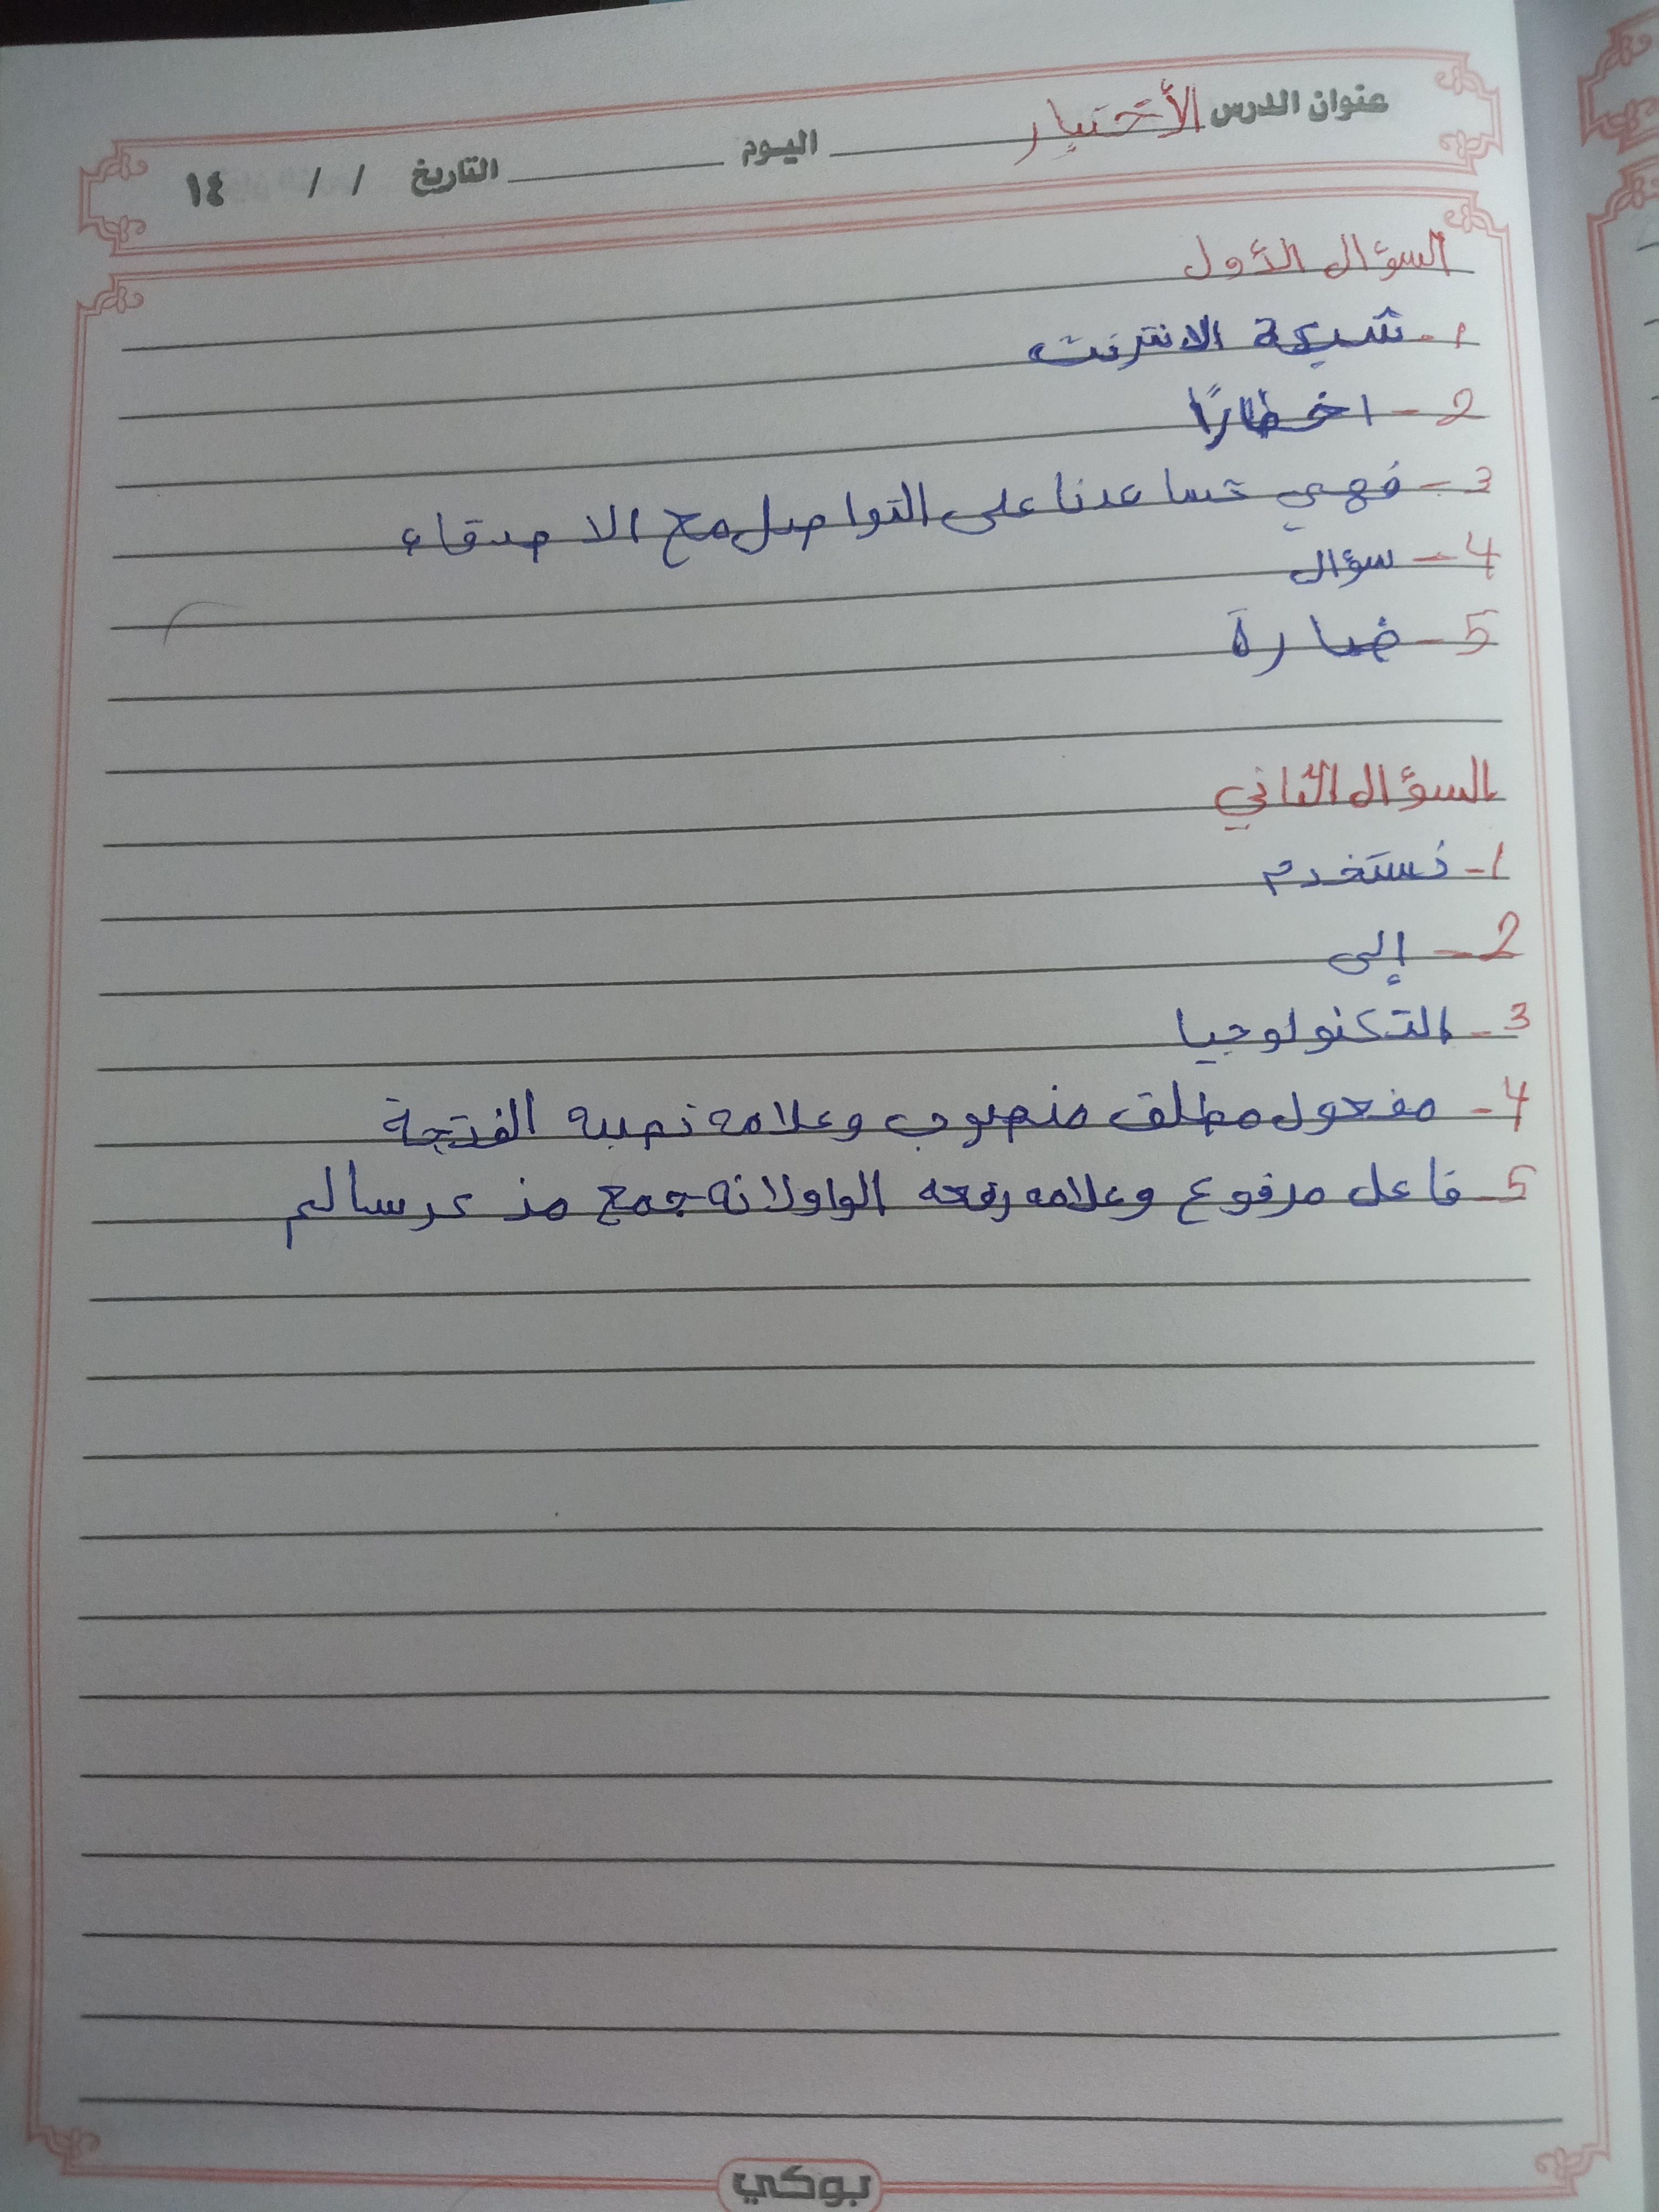 عنوان الدرس الأختبار اليوم التاريخ / / ١٤
السؤال الأول
1- شبكة الانترنت
2- اخطارًا
3- فهي تساعدنا على التواصل مع الاصدقاء
4- سؤال
5- ضارة
السؤال الثاني
1- نستخدم
2- إلى
3- التكنولوجيا
4- مفعول مطلق منصوب وعلامه نصبه الفتحة
5- فاعل مرفوع وعلامه رفعه الواو لانه جمع مذكر سالم
بوكي